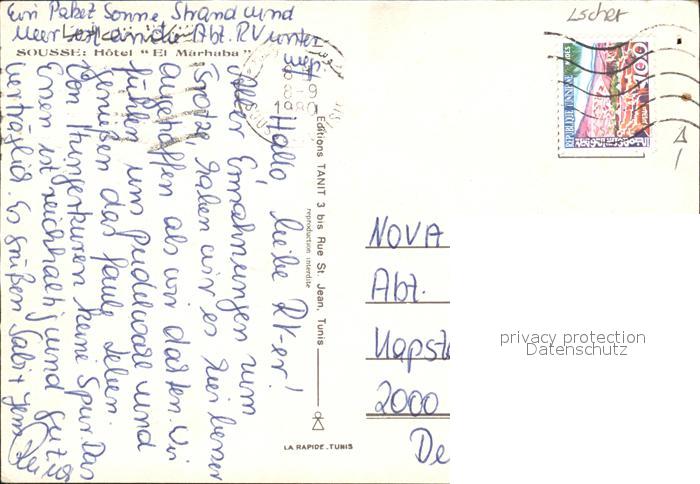 Ein Paket Sonne, Strand und
Meer an die Abt. RV unter
wegs
SOUSSE: Hôtel "El Marhaba"
Hallo, liebe RV-er!
Aller Ermahnungen zum
Trotze, haben wir es hier besser
angetroffen als wir dachten. Wir
fühlen uns pudelwohl und
genießen das faule Leben.
Von Hungerkuren keine Spur. Das
Essen ist reichhaltig und gut
verträglich. Es grüßen Sabi + Jens
8-9
1980
Editions TANIT 3 bis Rue St. Jean, Tunis
reproduction interdite
LA RAPIDE - TUNIS
Lscher
REPUBLIQUE TUNISIENNE
100
NOVA
Abt.
Kapst
2000
De
privacy protection
Datenschutz